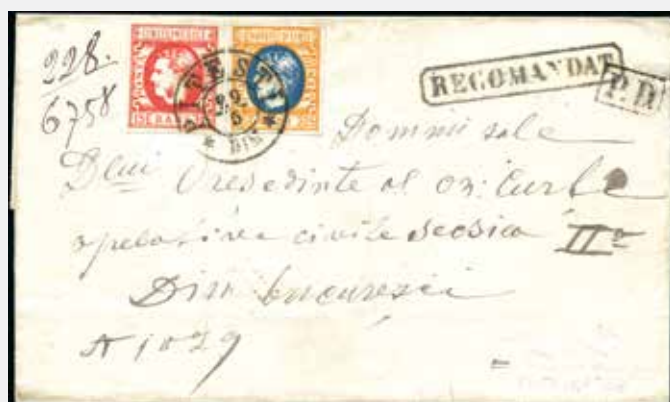 228.
6758
PITESTI
29
5
* DIM *
15 BANI
RECOMANDAT
P.D.
Domnii sale
Dlui Presedinte al on: Curte
apelative civile secsia IIa
Din bucuresci
N 1029